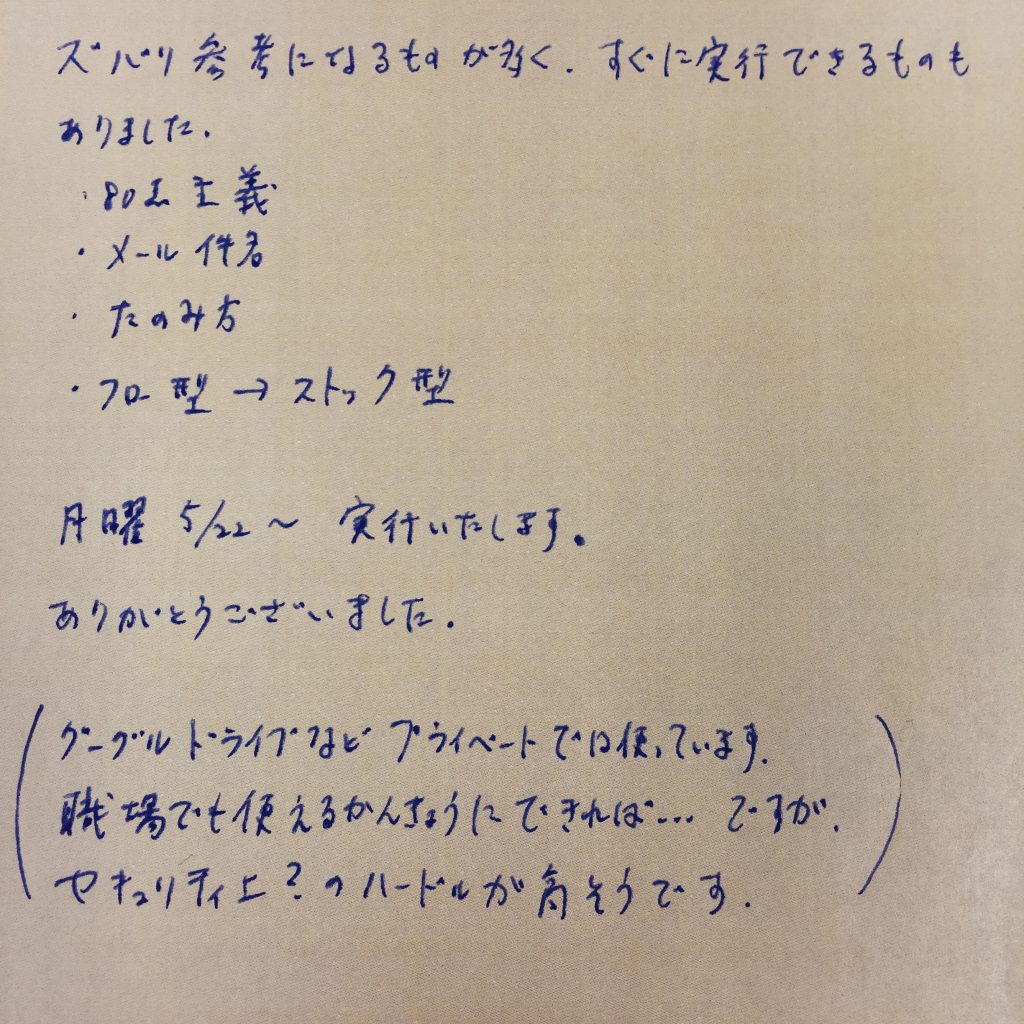 ズバリ参考になるものが多く、すぐに実行できるものも
ありました。
・80点主義
・メール件名
・たのみ方
・フロー型→ストック型
月曜 5/22～ 実行いたします。
ありがとうございました。
(グーグルドライブなどプライベートでは使っています。
職場でも使えるかんきょうにできれば…ですが、
セキュリティ上?のハードルが高そうです。)